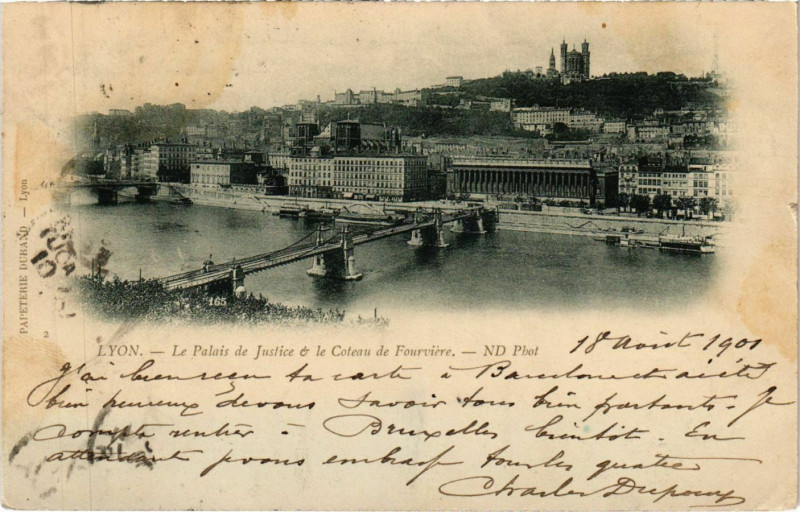 PAPETERIE DURAND — Lyon
2
165
LYON. — Le Palais de Justice & le Coteau de Fourvière. — ND Phot
18 Août 1901
J'ai bien reçu ta carte à Barcelone et ai été
bien heureux de vous savoir tous bien portants. Je
compte rentrer à Bruxelles bientôt. En
attendant je vous embrasse tous les quatre
Charles Dupouy